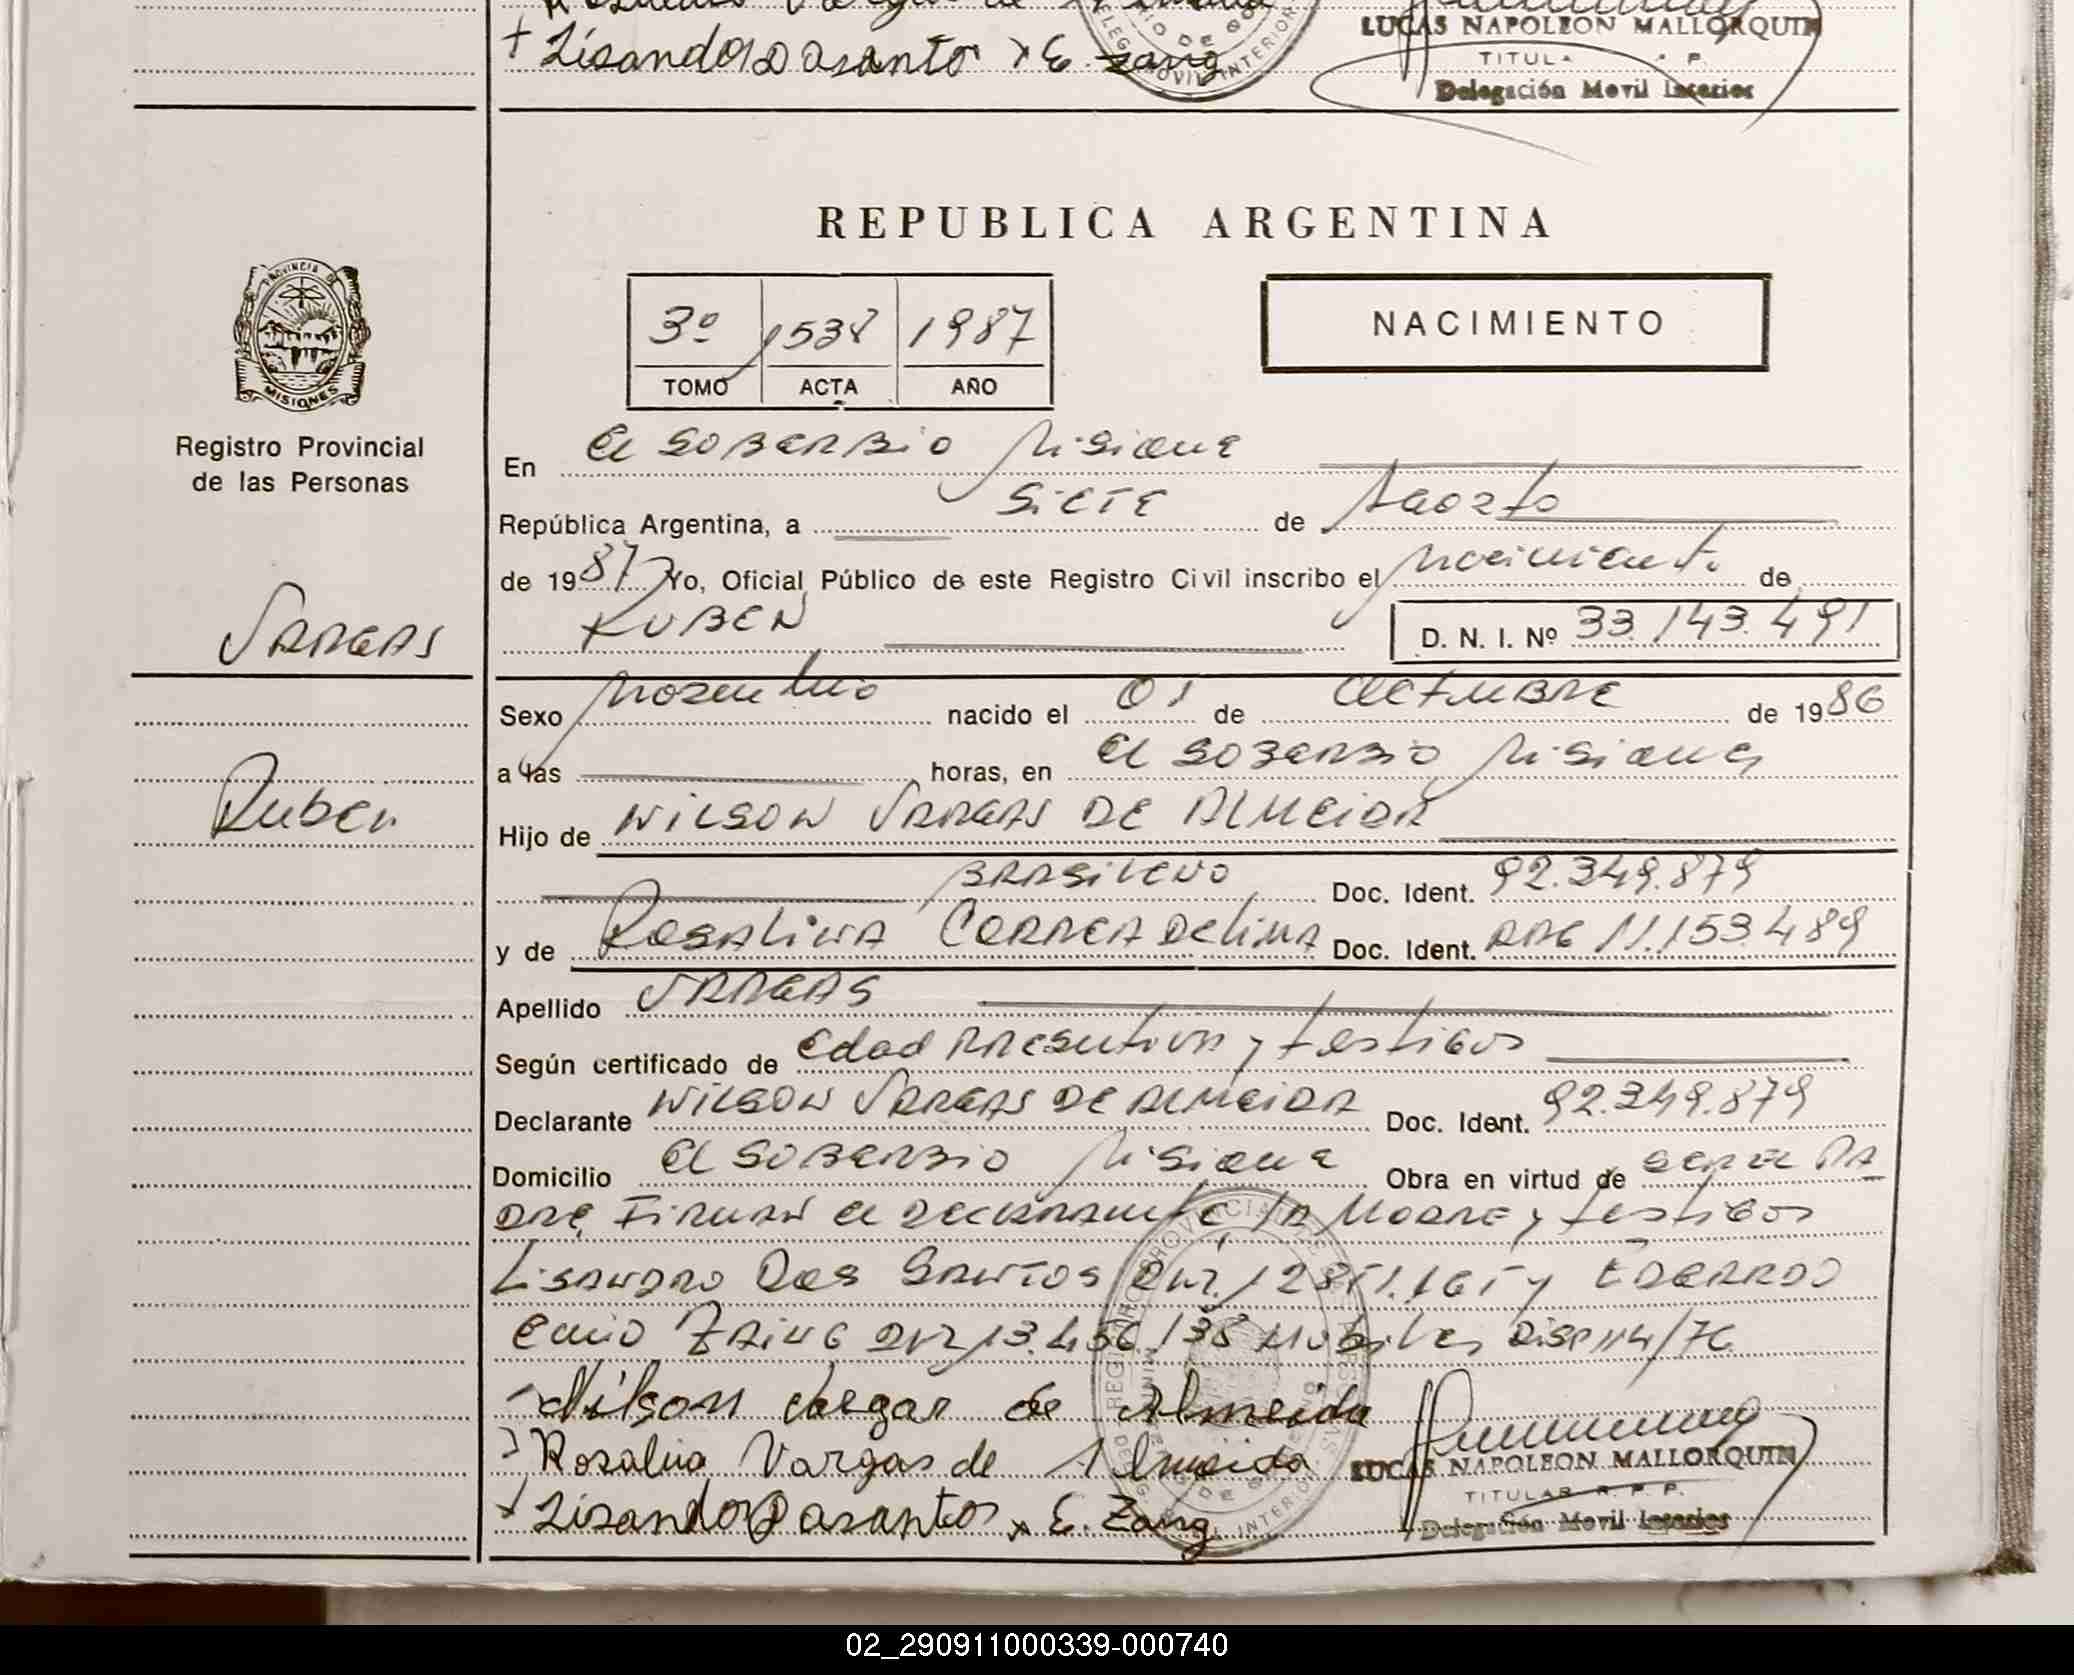 + Lisandro Dosanto x E. Zang
LUCAS NAPOLEON MALLORQUIN
TITUL P.
Delegación Movil Interior
REPUBLICA ARGENTINA
PROVINCIA DE
MISIONES
Registro Provincial
de las Personas
3º 1538 1987
TOMO ACTA AÑO
NACIMIENTO
En El SOBERBIO Misiones
República Argentina, a SIETE de Agosto
de 1987 Yo, Oficial Público de este Registro Civil inscribo el Nacimiento de
RUBEN D. N. I. Nº 33.143.491
VARGAS
Sexo Masculino nacido el 01 de OCTUBRE de 1986
a las horas, en El SOBERBIO Misiones
Ruben
Hijo de WILSON VARGAS DE ALMEIDA
BRASILENO Doc. Ident. 92.349.879
y de ROSALINA CORREA DE LIMA Doc. Ident. ARG 11.153.489
Apellido VARGAS
Según certificado de Edad PRESUNTIVA y testigos
Declarante WILSON VARGAS DE ALMEIDA Doc. Ident. 92.349.879
Domicilio El SOBERBIO Misiones Obra en virtud de SER EL PA
DRE, FIRMAN El DECLARANTE LA MADRE y testigos
LISANDRO DOS SANTOS DNI y
EMIO ZAING DNI 13.456.138 Mobiles Disp 114/76
Nilson Vargas de Almeida
Rosalina Vargas de Almeida
LUCAS NAPOLEON MALLORQUIN
TITULAR R. P. P.
+ Lisandro Dosantos x E. Zang
Delegación Movil Interior
02_290911000339-000740